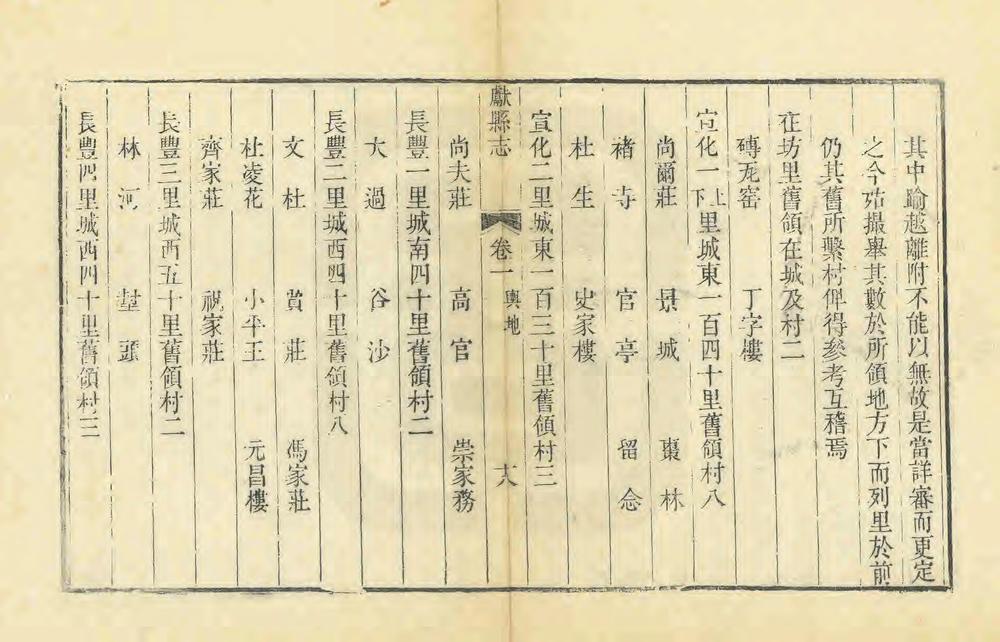 其中踰越離附不能以無故是當詳審而更定
之今姑撮舉其數於所領地方下而列里於前
仍其舊所繫村俾得參考互稽焉
在坊里舊領在城及村二
磚瓦窑 丁字樓
宣化一上下里城東一百四十里舊領村八
尚爾莊 景城 棗林
褚寺 官亭 留念
杜生 史家樓
宣化二里城東一百三十里舊領村三
獻縣志 卷一 輿地 十八
尚夫莊 高官 崇家務
長豐一里城南四十里舊領村二
大過 谷沙
長豐二里城西四十里舊領村八
文杜 黃莊 馮家莊
杜凌花 小平王 元昌樓
齊家莊 祝家莊
長豐三里城西五十里舊領村二
林河 頭
長豐四里城西四十里舊領村三